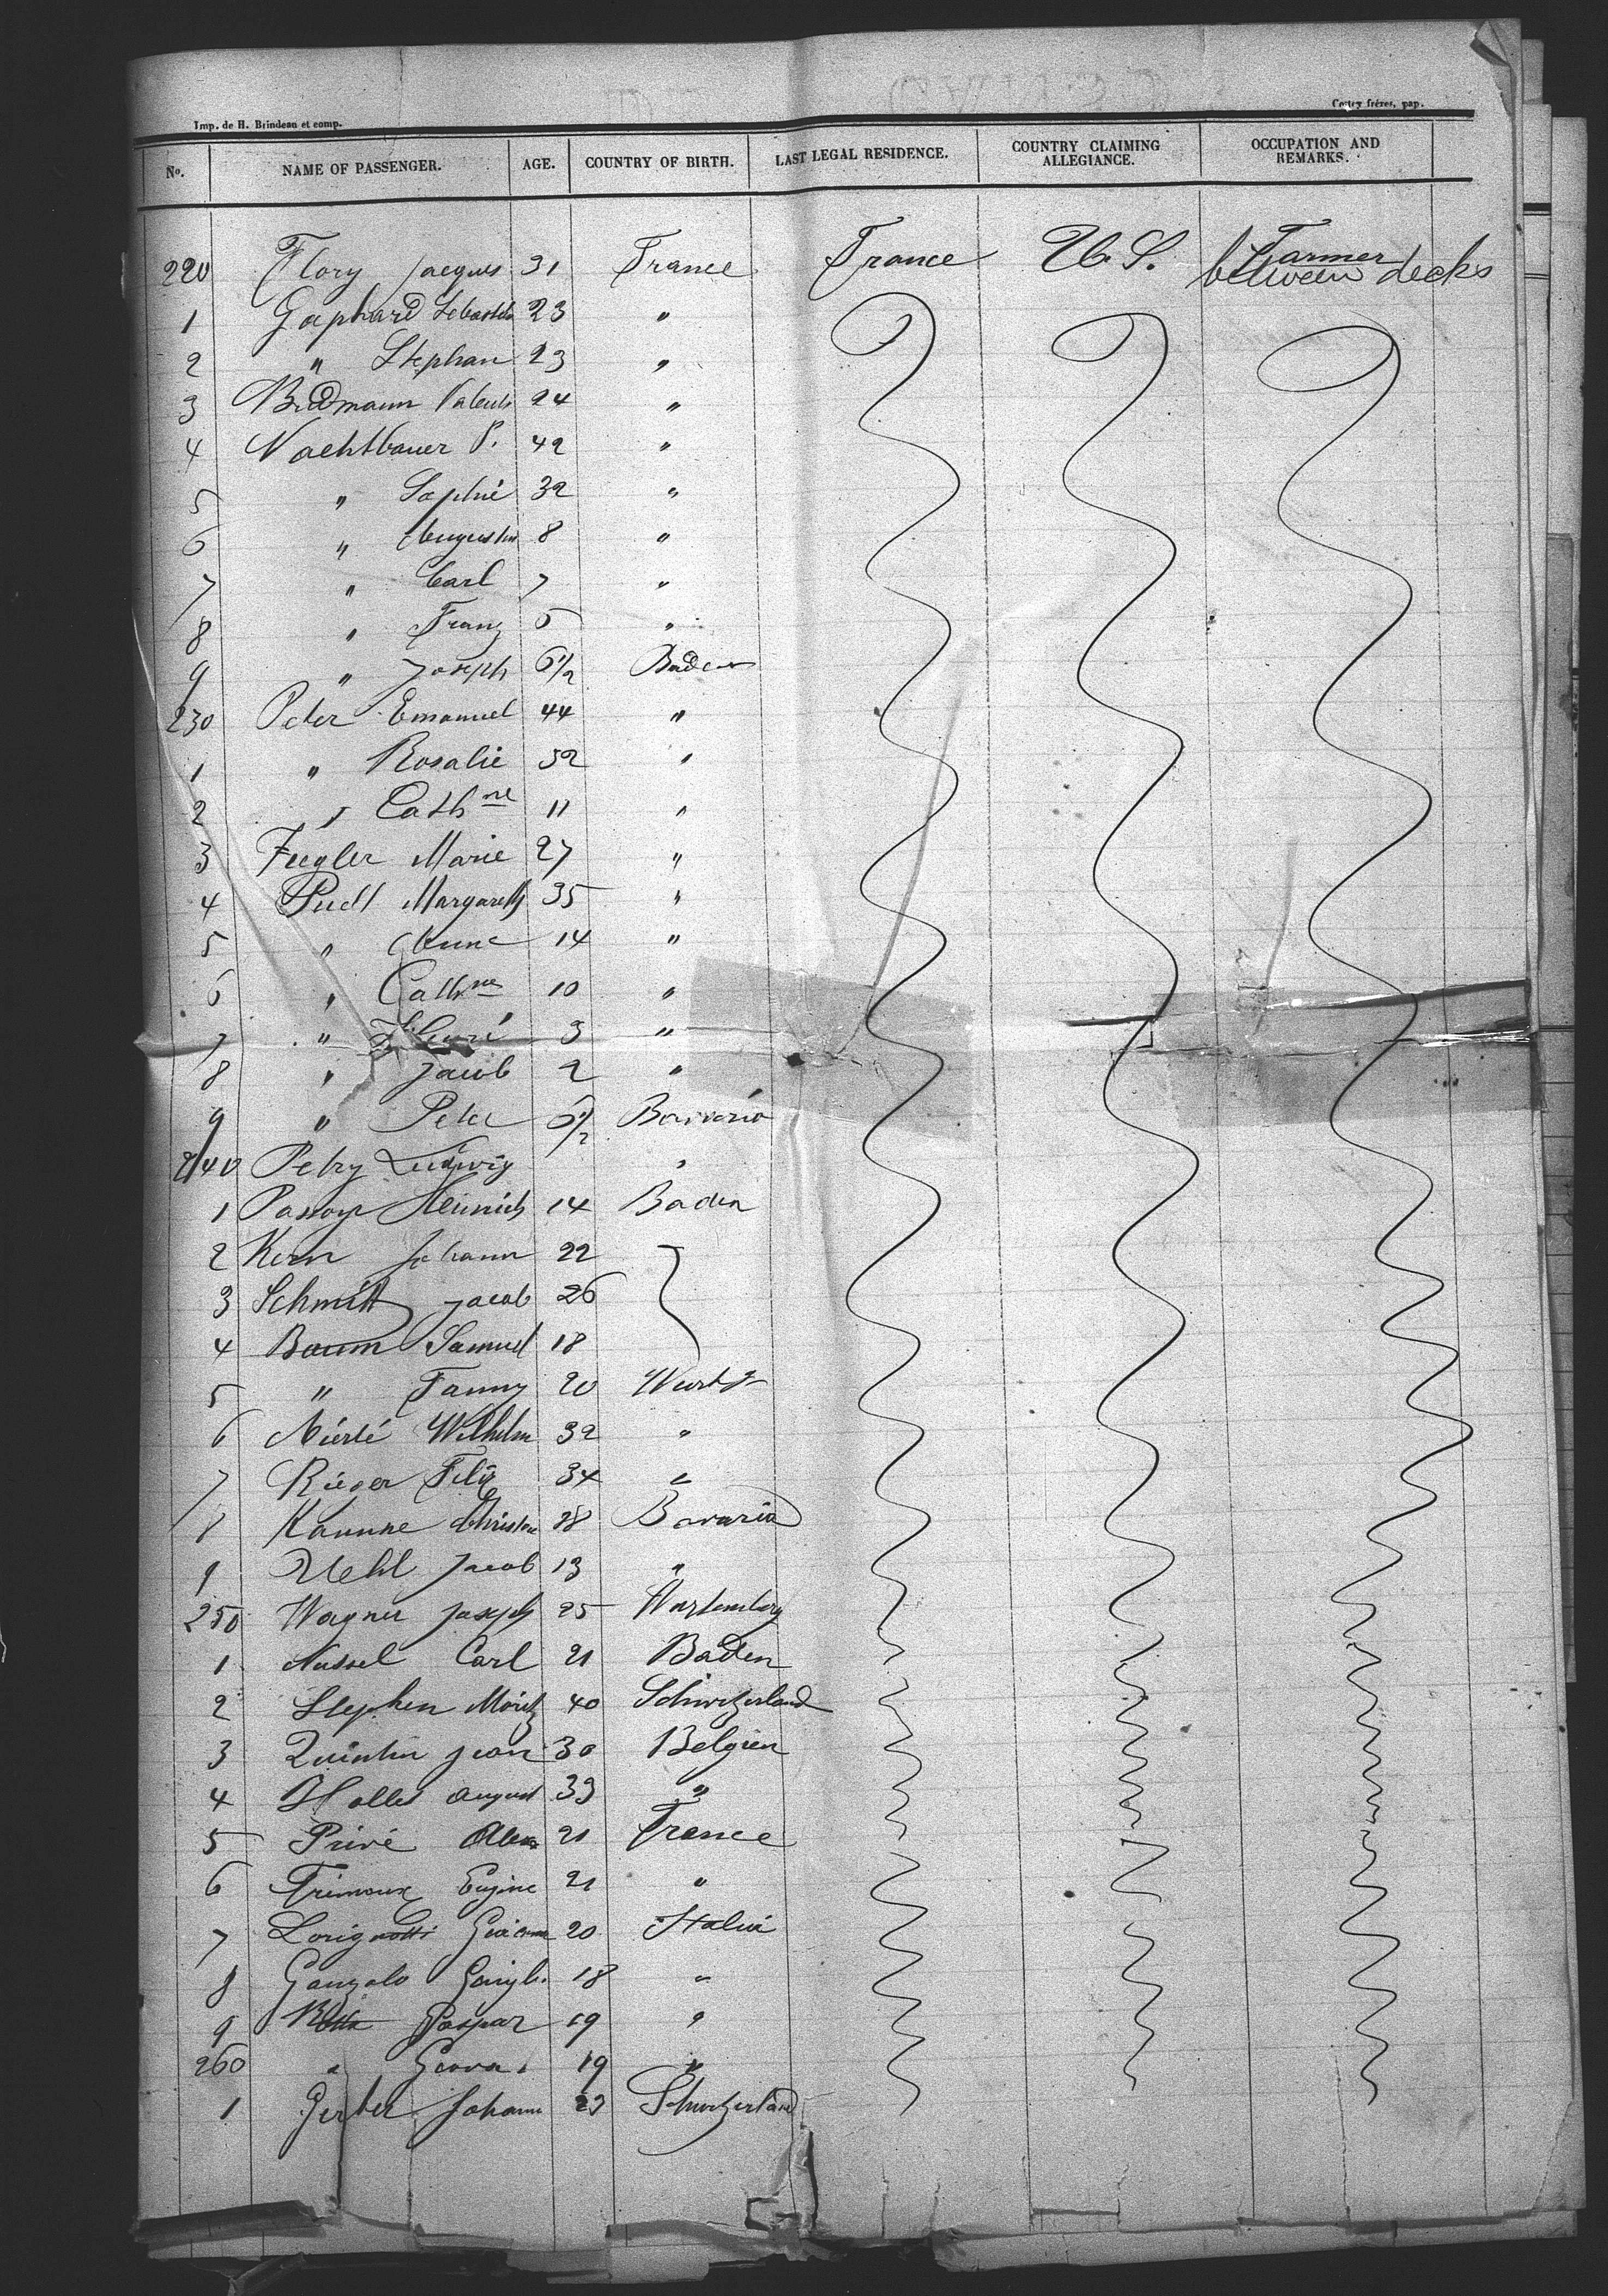 Imp. de H. Brindeau et comp.
No. NAME OF PASSENGER. AGE. COUNTRY OF BIRTH. LAST LEGAL RESIDENCE. COUNTRY CLAIMING ALLEGIANCE. OCCUPATION AND REMARKS.
220 Flory Jacques 31 France France U.S. Farmer between decks
1 Gaphard 23 "
2 " Stephan 23 "
3 24 "
4 Nachtbauer P. 42 "
5 " Sophie 32 "
6 " 8 "
7 " Carl 7 "
8 " Franz 5 "
9 " Joseph 6/2 Baden
230 Peter Emanuel 44 "
1 " Rosalie 52 "
2 " Cathne 11 "
3 Fugler Marie 27 "
4 Margareth 35 "
5 " Anne 14 "
6 " Cathne 10 "
7 " 3 "
8 " Jacob 2 "
9 " Peter
240 Petry Ludwig "
1 Heinrich 14 Baden
2 Kern Johann 22
3 Schmitt Jacob 26
4 Baum Samuel 18
5 " Fanny 20 Wurtg
6 Wilhelm 32 "
7 Rieger Felix 34 "
8 28 Bavaria
9 Uehl Jacob 13 "
250 Wagner Joseph 25
1 Nussel Carl 21 Baden
2 Stephen Moritz 40 Schwitzerland
3 Quintin Jean 30 Belgien
4 August 33 "
5 Privé Alex 21 France
6 Eugine 21 "
7 20 Italie
8 Gonzalo 18 "
9 Gaspar 19 "
260 " 19 "
1 Gerber Johann 23 Schwitzerland